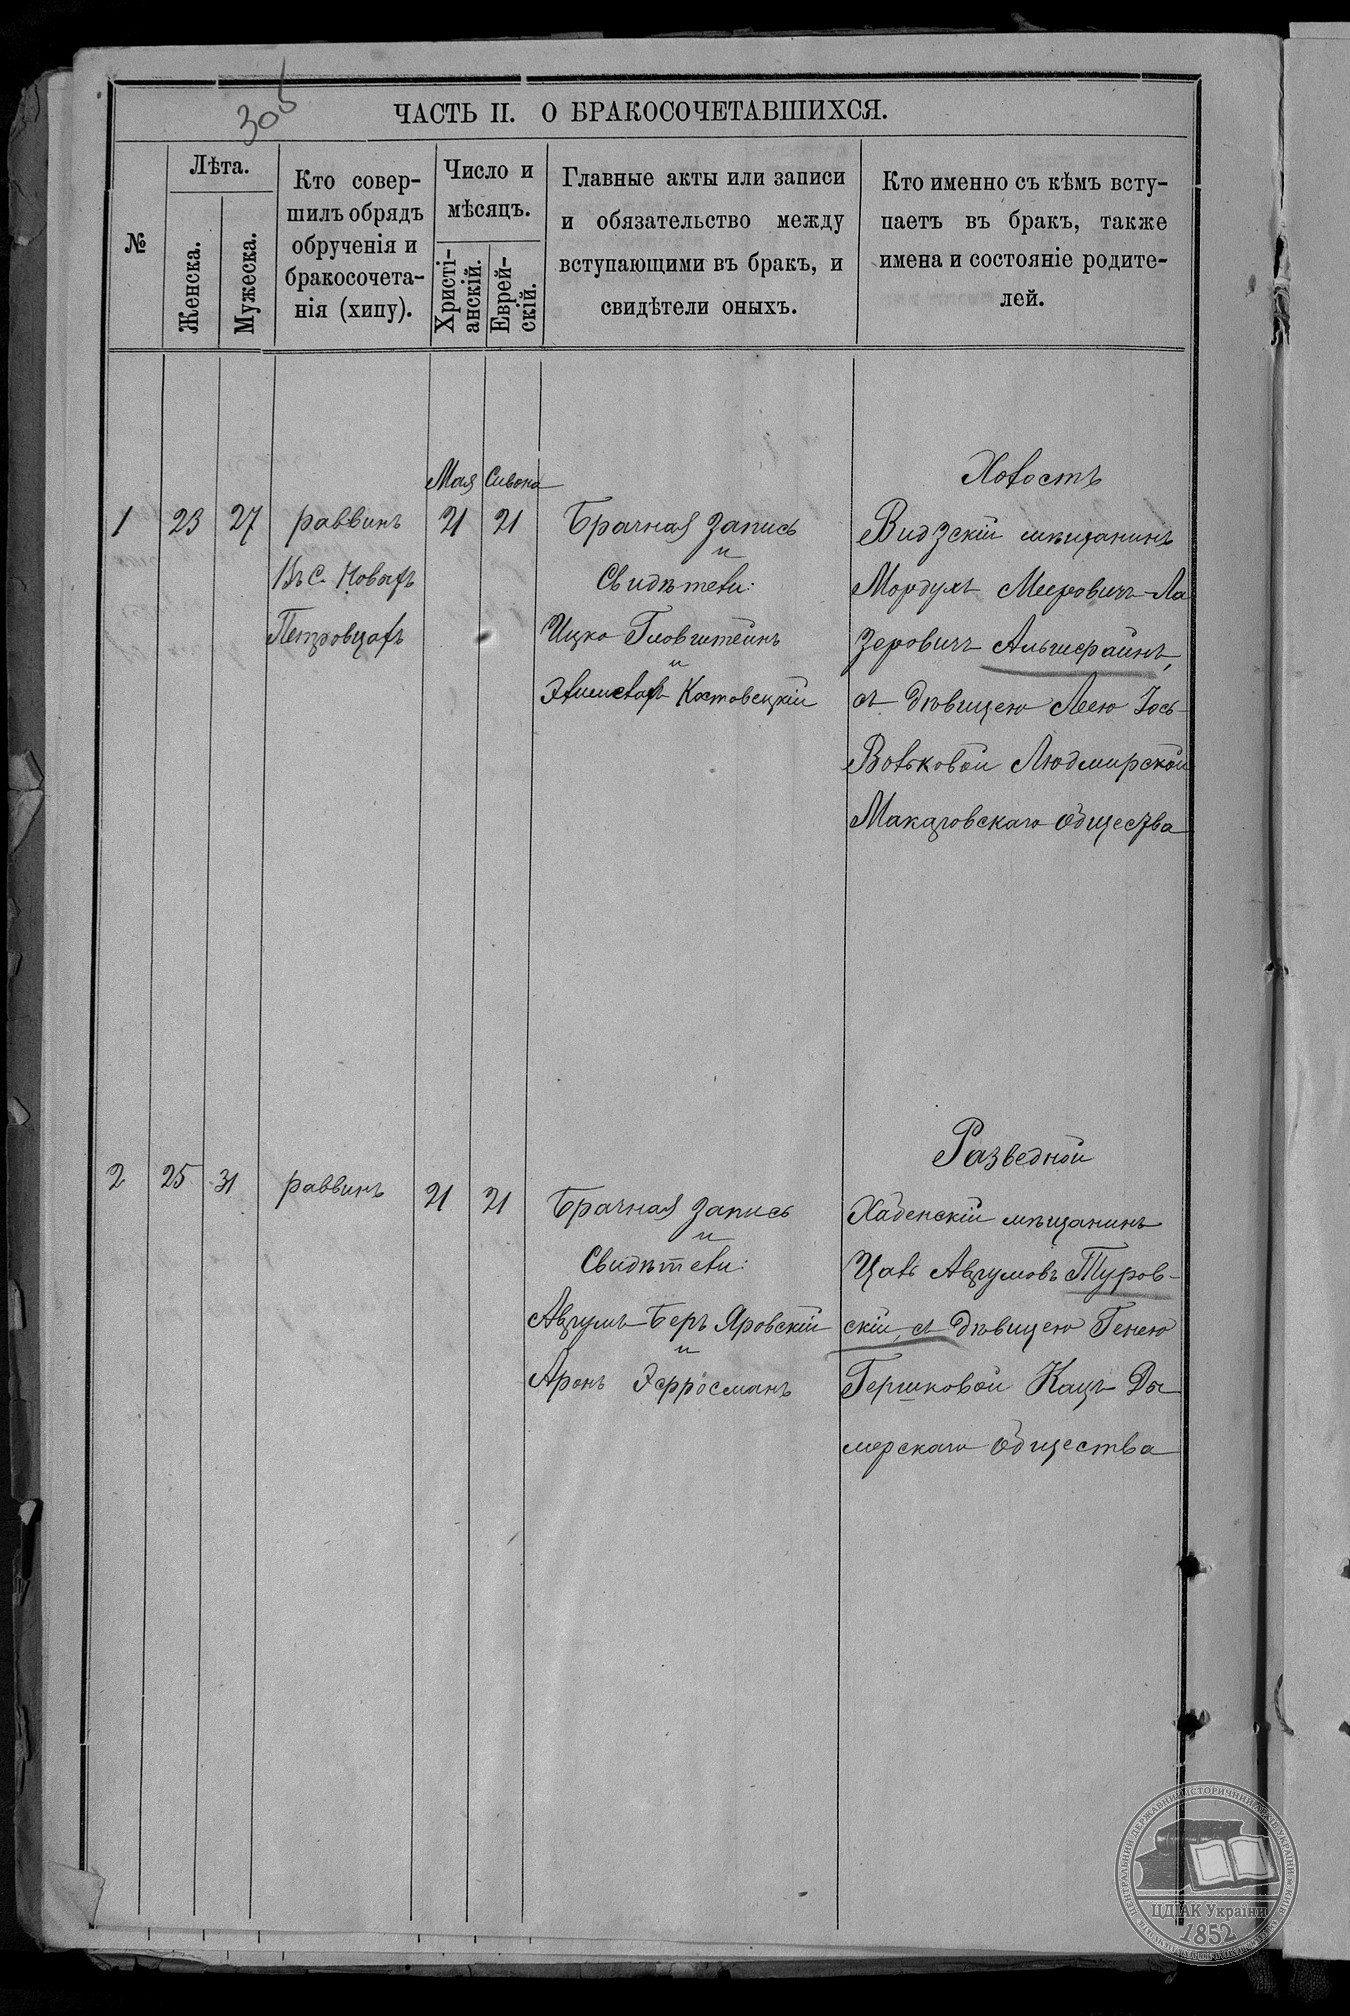 305
ЧАСТЬ II. О БРАКОСОЧЕТАВШИХСЯ.
№
Лѣта.
Женска.
Мужеска.
Кто совер-
шилъ обрядъ
обрученія и
бракосочета-
нія (хипу).
Число и
мѣсяцъ.
Христі-
анскій.
Еврей-
скій.
Главные акты или записи
и обязательство между
вступающими въ бракъ, и
свидѣтели оныхъ.
Кто именно съ кѣмъ всту-
паетъ въ бракъ, также
имена и состояніе родите-
лей.
1
23
27
раввинъ
Въ с. Новыхъ
Петровцахъ
Мая
21
Сивона
21
Брачная запись
и
Свидѣтели:
Ицко Гловштейнъ
и
Костовецкій
Холостъ
Видзскій мѣщанинъ
Мордухъ Мееровичъ-Ла
зеровичъ Альшефайнъ,
съ дѣвицею Леею Іось-
Вольковой Людмирской
Макаровскаго общества
2
25
31
раввинъ
21
21
Брачная запись
и
Свидѣтели:
Аврумъ-Беръ Яровскій
и
Аронъ Эфросманъ
Разведной
Хабенскій мѣщанинъ
Цаль Аврумовъ Туров-
скій, съ дѣвицею Генею
Гершковой Кацъ Ды-
мерскаго общества
ЦЕНТРАЛЬНИЙ ДЕРЖАВНИЙ ІСТОРИЧНИЙ АРХІВ УКРАЇНИ, М. КИЇВ
ЦДІАК України
1852